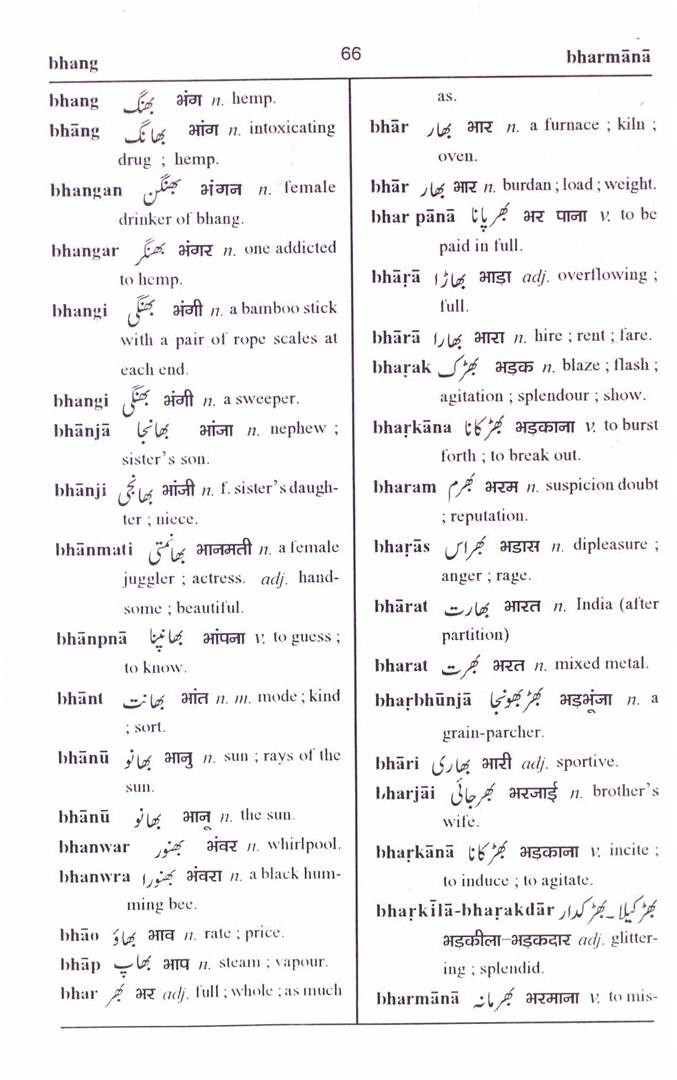 bhang
66
bharmānā
bhang بھنگ भंग n. hemp.
bhāng بھانگ भांग n. intoxicating
drug ; hemp.
bhangan بھنگن भंगन n. female
drinker of bhang.
bhangar بھنگر भंगर n. one addicted
to hemp.
bhangi بھنگی भंगी n. a bamboo stick
with a pair of rope scales at
each end.
bhangi بھنگی भंगी n. a sweeper.
bhānjā بھانجا भांजा n. nephew ;
sister's son.
bhānji بھانجی भांजी n. f. sister's daugh-
ter ; niece.
bhānmati بھانمتی भानमती n. a female
juggler ; actress. adj. hand-
some ; beautiful.
bhānpnā بھانپنا भांपना v. to guess ;
to know.
bhānt بھانت भांत n. m. mode ; kind
; sort.
bhānū بھانو भानु n. sun ; rays of the
sun.
bhānū بھانو भानू n. the sun.
bhanwar بھنور भंवर n. whirlpool.
bhanwra بھنورا भंवरा n. a black hum-
ming bee.
bhāo بھاؤ भाव n. rate ; price.
bhāp بھاپ भाप n. steam ; vapour.
bhar بھر भर adj. full ; whole ; as much
as.
bhār بھار भार n. a furnace ; kiln ;
oven.
bhār بھار भार n. burdan ; load ; weight.
bhar pānā بھر پانا भर पाना v. to be
paid in full.
bhāṛā بھاڑا भाडा adj. overflowing ;
full.
bhārā بھارا भारा n. hire ; rent ; fare.
bhaṛak بھڑک भडक n. blaze ; flash ;
agitation ; splendour ; show.
bhaṛkāna بھڑکانا भडकाना v. to burst
forth ; to break out.
bharam بھرم भरम n. suspicion doubt
; reputation.
bhaṛās بھڑاس भडास n. dipleasure ;
anger ; rage.
bhārat بھارت भारत n. India (after
partition)
bharat بھرت भरत n. mixed metal.
bhaṛbhūnjā بھڑبھونجا भडभूंजा n. a
grain-parcher.
bhāri بھاری भारी adj. sportive.
bharjāi بھرجائی भरजाई n. brother's
wife.
bhaṛkānā بھڑکانا भडकाना v. incite ;
to induce ; to agitate.
bhaṛkīlā-bhaṛakdār بھڑکیلا ـ بھڑکدار
भडकीला-भडकदार adj. glitter-
ing ; splendid.
bharmānā بھرمانہ भरमाना v. to mis-